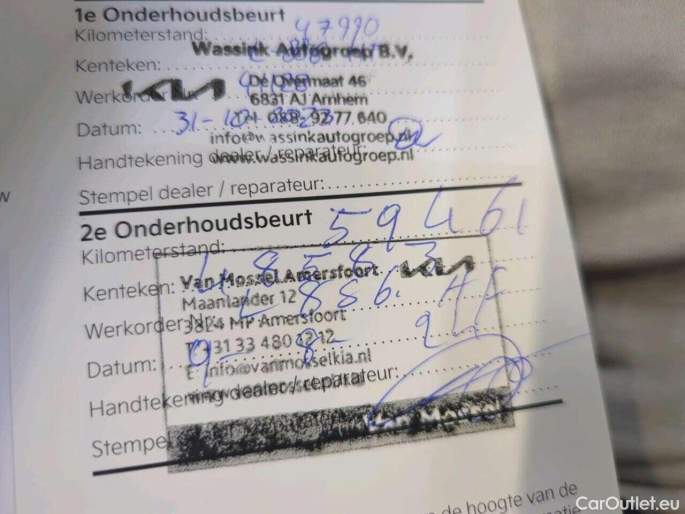 1e Onderhoudsbeurt
Kilometerstand: 47990
Wassink Autogroep B.V,
Kenteken:
KIA De Overmaat 46
Werkorder
6831 AJ Arnhem
Datum: 31-10-
088- 92 77 640
info@wassinkautogroep.nl
Handtekening dealer / reparateur:
www.wassinkautogroep.nl
Stempel dealer / reparateur:
2e Onderhoudsbeurt
Kilometerstand: 59461
Kenteken: Van Mossel Amersfoort KIA
Maanlander 12
Werkorder Nr.:
3824 MP Amersfoort
Datum: 9-8-24
+31 33 480 12 12
E info@vanmosselkia.nl
Handtekening dealer / reparateur:
Stempel
de hoogte van de
CarOutlet.eu